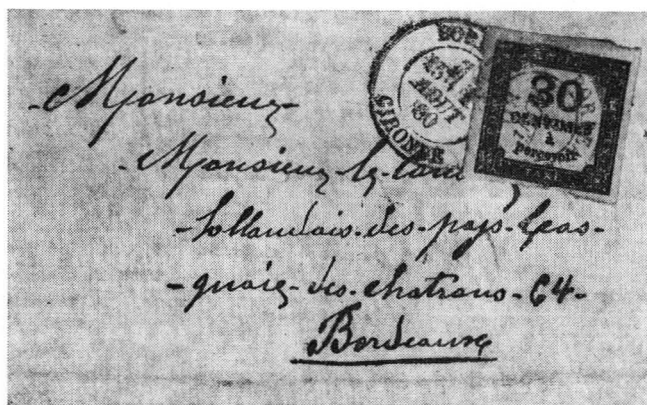 BOR
AOUT
80
GIRONDE
30
CENTIMES
à
percevoir
-Monsieur-
Monsieur le
-hollandais-des-pays-bas-
-quaie-des-chatrons-64-
Bordeaux